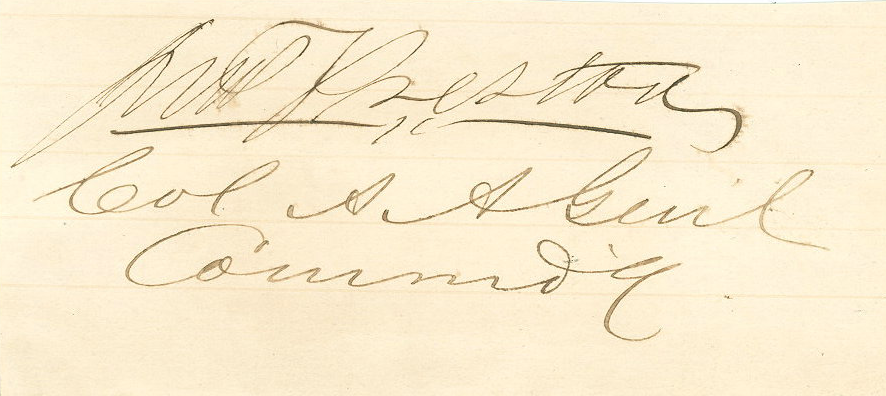 Preston
Col A. A Genl
Commdg